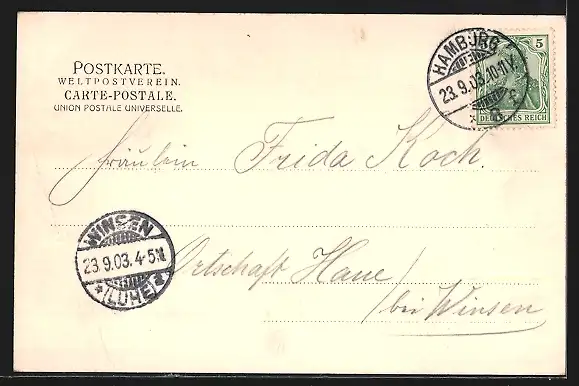 POSTKARTE.
WELTPOSTVEREIN.
CARTE-POSTALE.
UNION POSTALE UNIVERSELLE.
HAMBURG
23.9.03.10-11V.
5
DEUTSCHES REICH
Fräulein Frida Koch.
WINSEN
23.9.03.4-5N.
*(LUHE)*
Ortschaft Haue
/bei Winsen